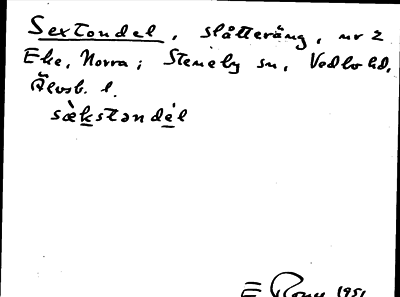 Sextondel, slåtteräng, nr 2
Eke, Norra; Steneby sn, Vedbo hd,
Älvsb. l.
sæ̀kstəndél
1951